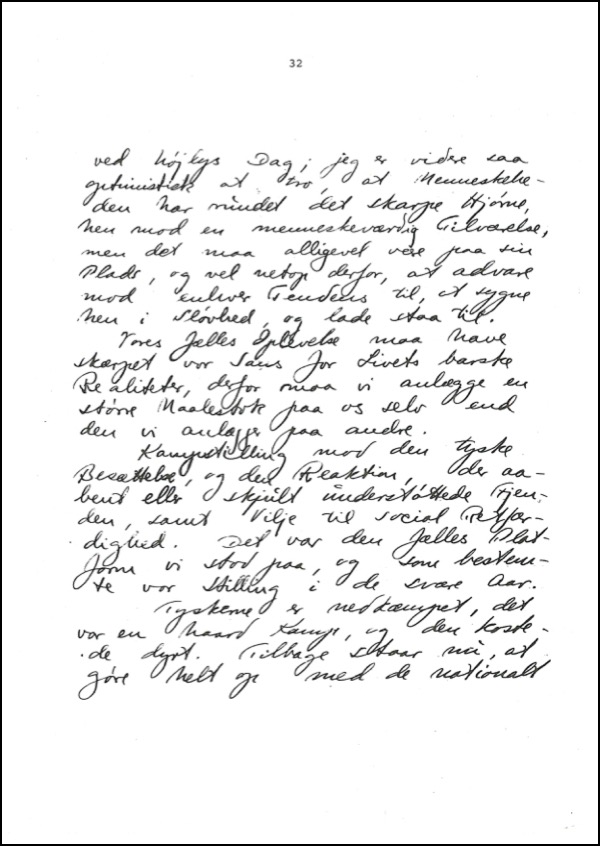 32
ved højlys Dag; jeg er videre saa
optimistisk at tro, at Menneskehe-
den har rundet det skarpe Hjørne,
hen mod en menneskeværdig Tilværelse,
men det maa alligevel være paa sin
Plads, og vel netop derfor, at advare
mod enhver Tendens til, at sygne
hen i Sløvhed, og lade staa til.
Vores fælles Oplevelse maa have
skærpet vor Sans for Livets barske
Realiteter, derfor maa vi anlægge en
større Maalestok paa os selv end
den vi anlægger paa andre.
Kampstilling mod den tyske
Besættelse, og den Reaktion, der aa-
bent eller skjult understøttede Fjen-
den, samt Vilje til social Retfær-
dighed. Det var den fælles Plat-
form vi stod paa, og som bestem-
te vor Stilling i de svære Aar.
Tyskerne er nedkæmpet, det
var en haard Kamp, og den koste-
de dyrt. Tilbage staar nu, at
gøre helt op med de nationalt